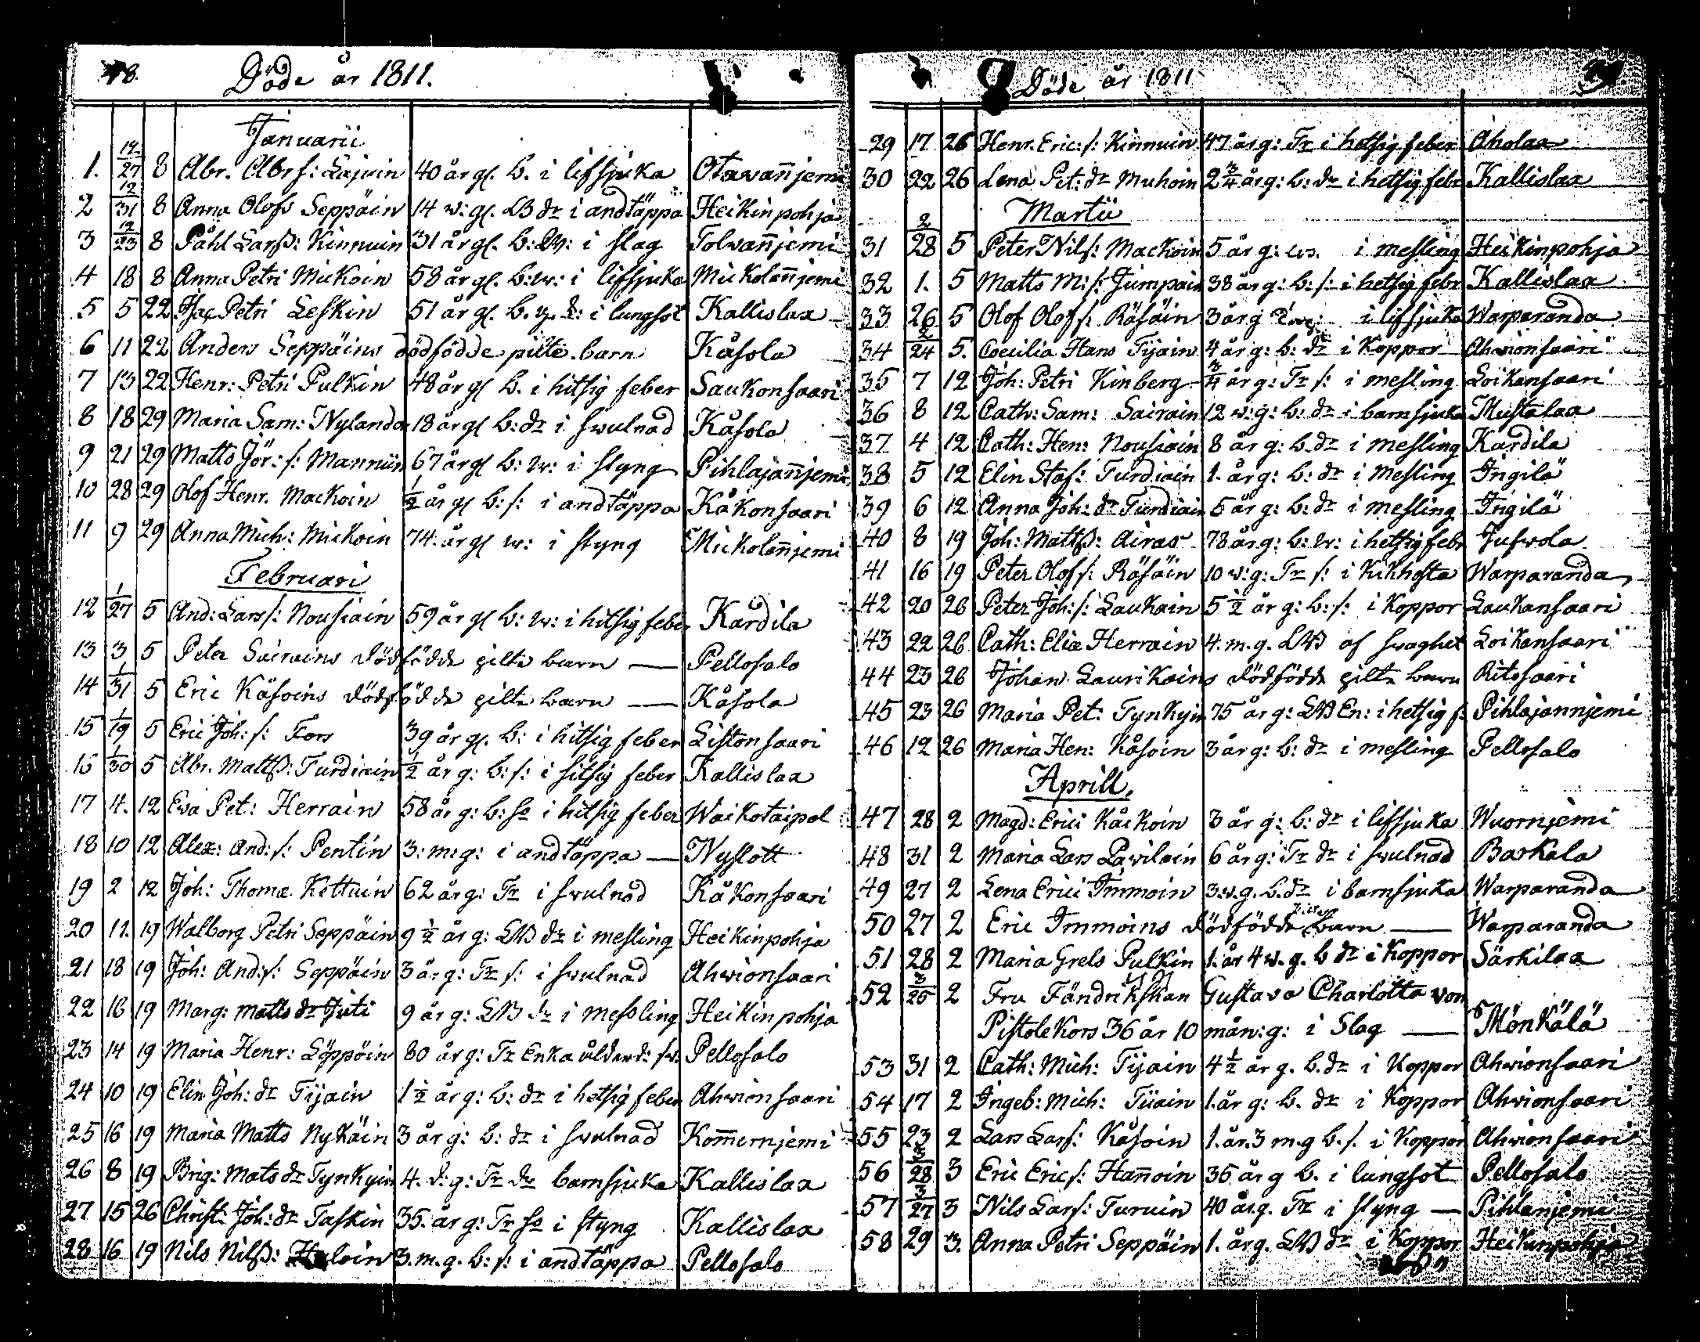 78. Döde år 1811.
Januarii
1. 12/27 8 Abr. Abr s: Lajuin 40 år gl. b. i lifsjuka Otavanjemi
2 12/31 8 Anna Olofs Seppäin 14 w: gl. LB dr i andtäppa Heikinpohja
3 12/23 8 Påhl Larss: Kinnuin 31 år gl. b: i slag Tolvanjemi
4 18 8 Anna Petri Mickoin 58 år gl. b: w: i lifsjuka Mickolanjemi
5 5 22 Jac Petri Leskin 51 år gl. b. i lungsot Kallislax
6 11 22 Anders Seppäins dödfödde pilte barn Kåsola
7 13 22 Henr: Petri Pulkin 48 år gl b. i hitsig feber Saukonsaari
8 18 29 Maria Sam: Nylanda 18 år gl b: dr i svulnad Kåsola
9 21 29 Matts Jör: s: Manniin 67 år gl b: w: i styng Pihlajanjemi
10 28 29 Olof Henr. Mackoin 1/2 år gl b: s: i andtäppa Kåkonsaari
11 9 29 Anna Mich: Mickoin 74 år gl w: i styng Mickolanjemi
Februari
12 1/27 5 And: Lars s: Nousiain 59 år gl b: w: i hitsig feber Kardila
13 3 5 Peter Sairains dödfödde pilte barn — Pellosalo
14 1/31 5 Eric Kåsoins dödfödde pilte barn — Kåsola
15 1/19 5 Eric Joh: s: Fors 39 år gl. b: i hitsig feber Listonsaari
16 1/30 5 Abr. Matts s: Turdiain 1/2 år g: b: s: i hitsig feber Kallislax
17 4. 12 Eva Pet: Herrain 58 år g: b: ho i hitsig feber Waikotaipal
18 10 12 Alex: And: s: Pentin 3: m: g: i andtäppa — Nyslott
19 2 12 Joh: Thomæ Kettuin 62 år g: Tr i svulnad Kåkonsaari
20 11. 19 Walborg Petri Seppäin 9 1/2 år g: LB dr i mesling Heikinpohja
21 18 19 Joh: And: s: Seppäin 3 år g: Tr s: i svulnad Ahvionsaari
22 16 19 Marg: Matts dr Juti 9 år g: LB dr i messling Heikinpohja
23 14 19 Maria Henr: Löppöin 80 år g: Tr Enka ålderd: sv: Pellosalo
24 10 19 Elin Joh: dr Tijain 1 1/2 år g: b: dr i hetsig feber Ahvionsaari
25 16 19 Maria Matts Nykäin 3 år g: b: dr i svulnad Komernjemi
26 8 19 Brig: Mats dr Tynkyin 4. d: g: Tr dr barnsjuka Kallislax
27 15 26 Christ: Joh: dr Taskin 35. år g: Tr ho i styng Kallislax
28 16 19 Nils Nilss: 3. m. g. b: s: i andtäppa Pellosalo
Döde år 1811
29 17 26 Henr. Eric: s: Kinnuin 47 år g: Tr i hetsig feber Aholax
30 22 26 Lena Pet: dr Muhoin 2 3/4 år g: b: dr i hetsig febr Kallislax
Martii
31 2/28 5 Peter Nils s: Mackoin 5 år g: i mesling Heikinpohja
32 1. 5 Matts M: s: Jumpain 38 år g: b: s: i hetsig febr Kallislax
33 26 5 Olof Olof s: Räsäin 3 år g i lifsjuka Warparanda
34 2/24 5. Coecilia Hans Tijain 4 år g: b: dr i Koppor Ahvionsaari
35 7 12 Joh: Petri Kinberg 3/4 år g: Tr s: i mesling Loikansaari
36 8 12 Cath: Sam: Sairain 12 w: g: b: dr i barnsjuka Mustalax
37 4 12 Cath: Hen: Nousiain 8 år g: b. dr i mesling Kardila
38 5 12 Elin Staf: Turdiain 1. år g: b: dr i mesling Ingilä
39 6 12 Anna Joh: dr Turdiain 5 år g: b: dr i mesling Ingilä
40 8 19 Joh: Mattss: Airas 78 år g: b: w: i hetsig febr Jufvola
41 16 19 Peter Olof s: Räsäin 10 w: g: Tr s: i kikhosta Warparanda
42 20 26 Peter Joh: s: Laukain 5 1/2 år g: b: s: i Koppor Laukansaari
43 22 26 Cath: Eliæ Herrain 4. m. g. LB af svaghet Loikansaari
44 23 26 Johan Laurikains dödfödde pilte barn Ritosaari
45 23 26 Maria Pet: Tynkyin 75 år g: LB En: i hetsig f: Pihlajannjemi
46 12 26 Maria Hen: Kåsoin 3 år g: b: dr i mesling Pellosalo
Aprill.
47 28 2 Magd: Erici Käckoin 3 år g: b: dr i lifsjuka Wuornjemi
48 31 2 Maria Lars Pavilain 6 år g: Tr dr i svulnad Barkala
49 27 2 Lena Erici Immoin 3. w. g. b. dr i barnsjuka Warparanda
50 27 2 Eric Immoins dödfödde barn — Warparanda
51 28 2 Maria Grels Pulkin 1. år 4 w. g. b dr i Koppor Särkilax
52 3/25 2 Fru Fändrikskan Gustava Charlotta von
Pistolekors 36 år 10 mån: g: i Slag — Mönkälä
53 31 2 Cath: Mich: Tijain 4 1/2 år g. b. dr i Koppor Ahvionsaari
54 17 2 Ingeb: Mich: Tiiain 1. år g: b. dr i Koppor Ahvionsaari
55 23 2 Lars Lars s: Kåsoin 1. år. 3 m g b. s. i Koppor Ahvionsaari
56 3/28 3 Eric Eric s: Hanoin 36. år g b. i lungsot Pellosalo
57 3/27 3 Nils Lars s: Turuin 40 år. g. Tr i styng — Pihlanjemi
58 29 3. Anna Petri Seppäin 1. år g. LB dr i Koppor Heikinpohja